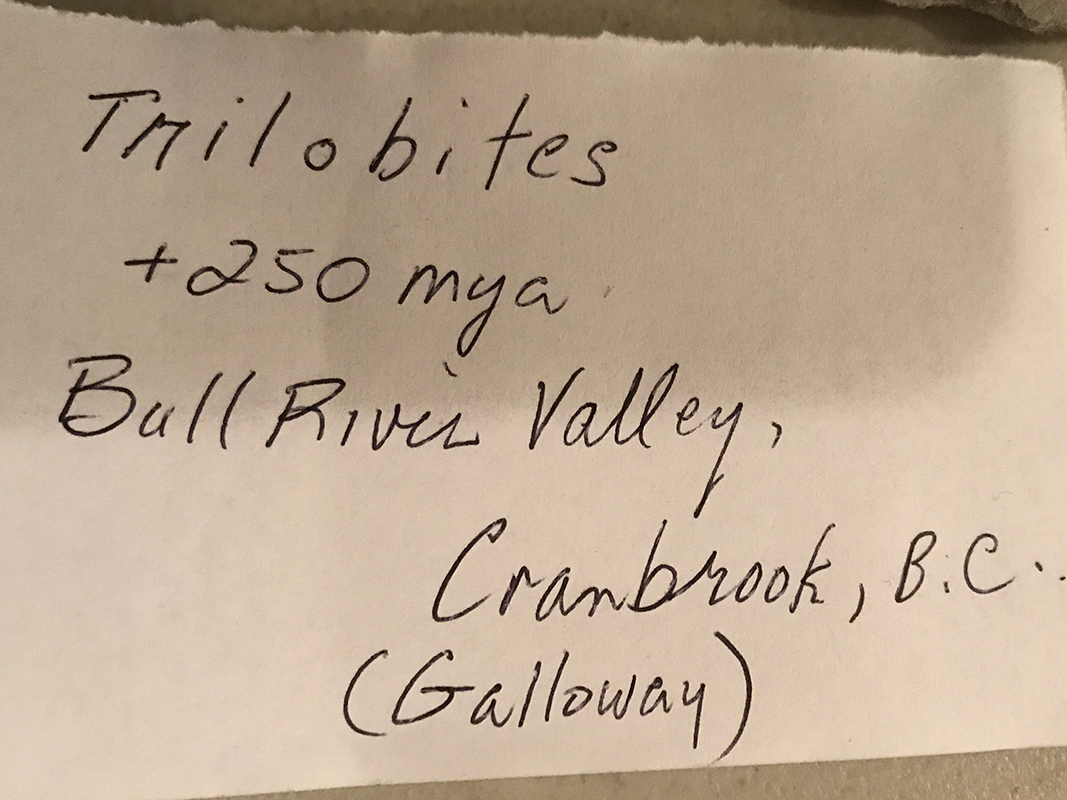 Trilobites
+250 mya
Bull River Valley,
Cranbrook, B.C.
(Galloway)